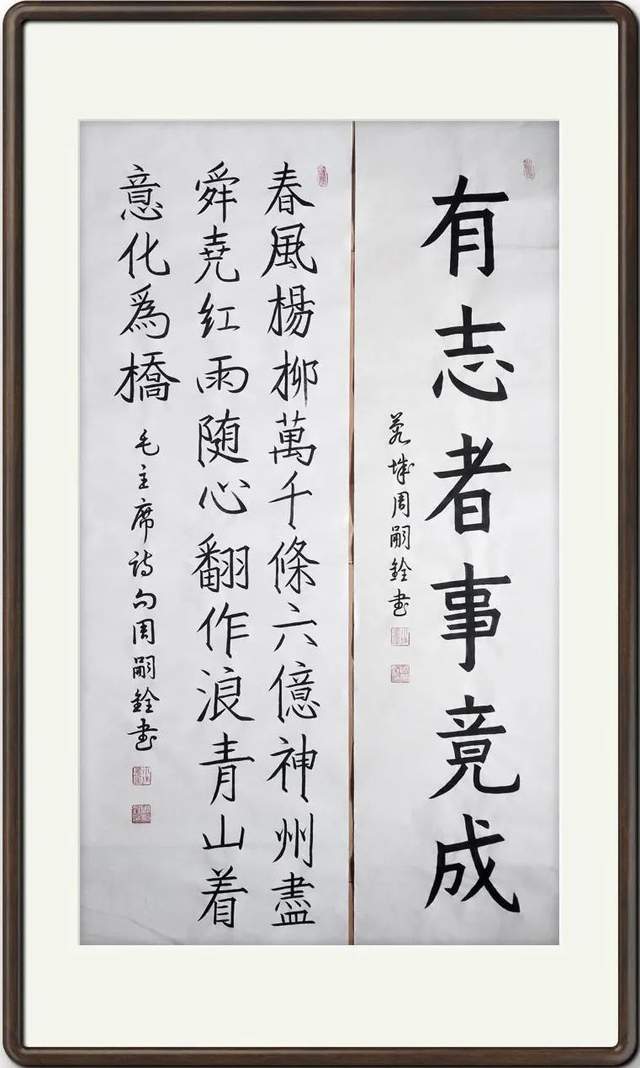 有志者事竟成
茗城周嗣銓書
春風楊柳萬千條六億神州盡
舜堯紅雨随心翻作浪青山着
意化爲橋
毛主席诗句周嗣銓书